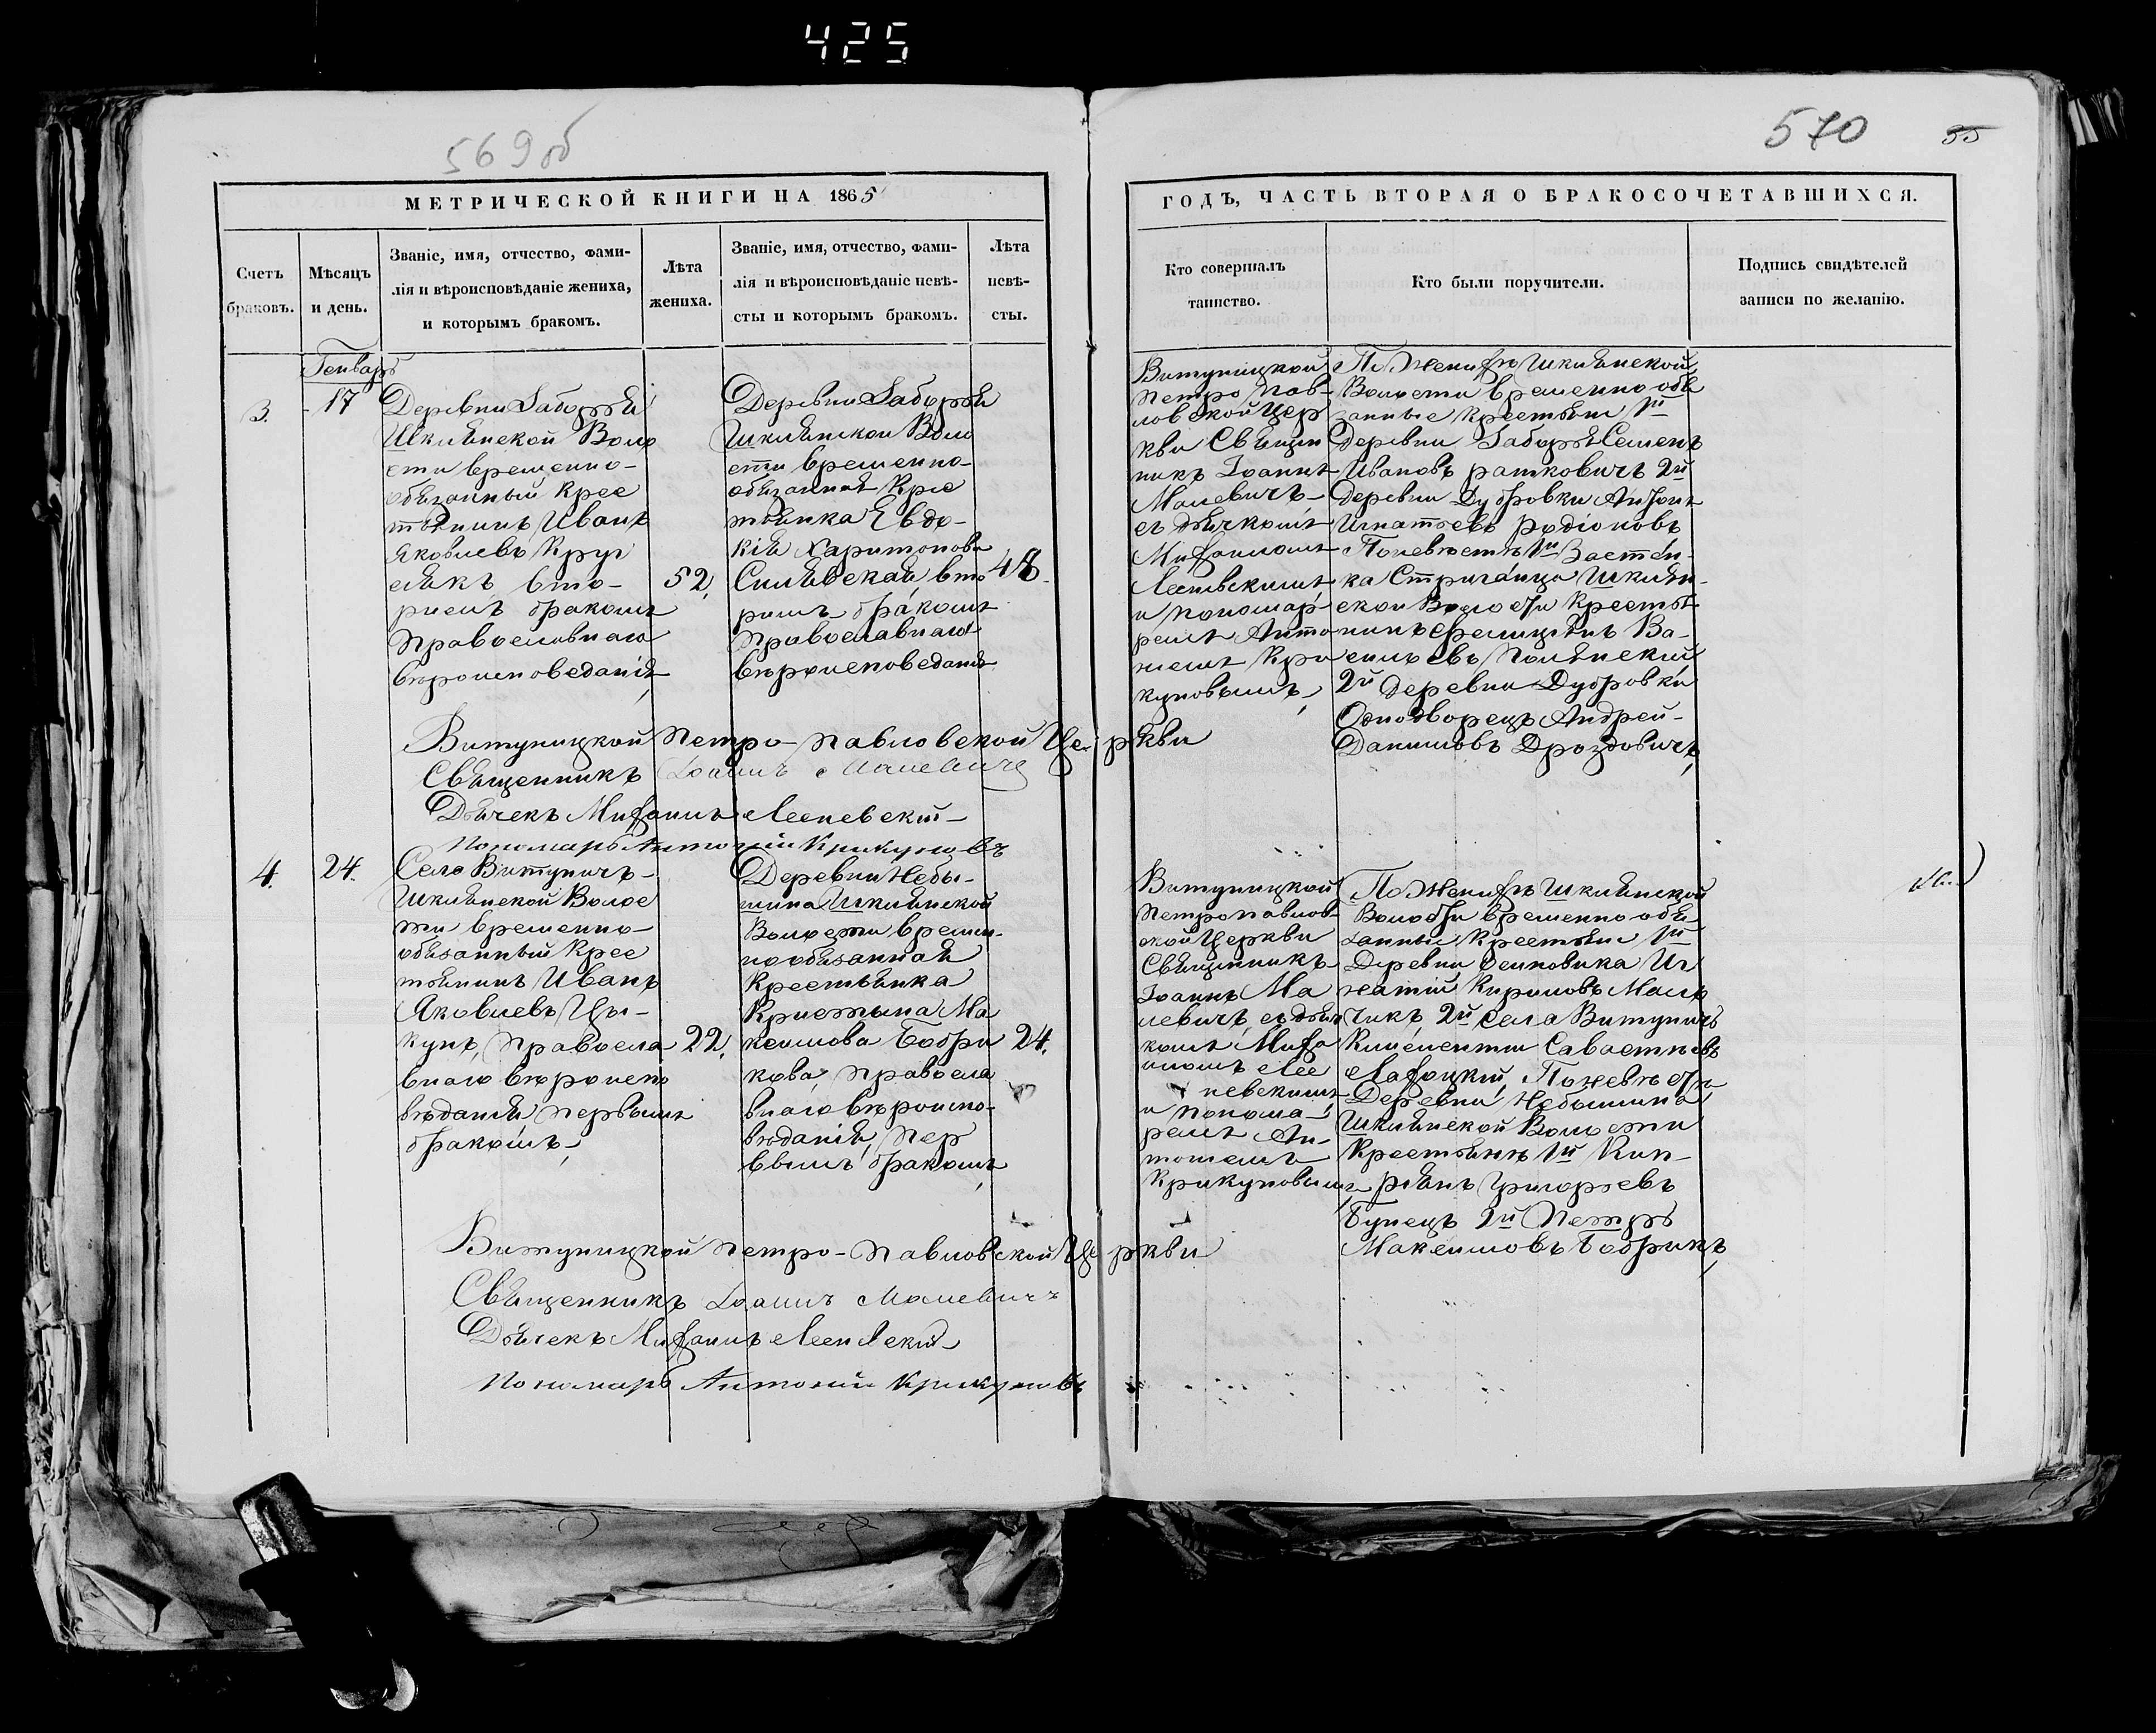 425
569об
570
55
МЕТРИЧЕСКОЙ КНИГИ НА 1865
ГОДЪ, ЧАСТЬ ВТОРАЯ О БРАКОСОЧЕТАВШИХСЯ.
Счетъ
браковъ.
Мѣсяцъ
и день.
Званіе, имя, отчество, фами-
лія и вѣроисповѣданіе жениха,
и которымъ бракомъ.
Лѣта
жениха.
Званіе, имя, отчество, фами-
лія и вѣроисповѣданіе невѣ-
сты и которымъ бракомъ.
Лѣта
невѣ-
сты.
Кто совершалъ
таинство.
Кто были поручители.
Подпись свидѣтелей
записи по желанію.
Генварь
3.
17
Деревни Заборья
Шклянской Воло
сти временно-
обязанный Крес
тьянинъ Иванъ
Яковлевъ Круг
лякъ вто-
рымъ бракомъ
Православнаго
вѣроисповеданія
52,
Деревни Заборья
Шклянской Воло
сти временно-
обязанная Крес
тьянка Евдо-
кія Харитонова
вто
рымъ бракомъ
Православнаго
вѣроисповеданія
48.
Витуницкой
Петро Пав-
ловской Цер
кви Священ
никъ Іоаннъ
Малевичъ
съ дьячкомъ
Михаиломъ
и пономар-
ремъ Анто
ніемъ Кри
куновымъ,
По Женихѣ Шклянской
Волости временно обя
занные Крестьяне 1й
Деревни Заборья Семенъ
Ивановъ раткевичъ 2й
Деревни Дубровки Антонъ
Игнатьевъ родіоновъ
По невѣстѣ 1й Застен-
ка Стригалица Шклян-
ской Волости Кресть
янинъ Фелиціянъ Ва-
сильевъ Полянскій
2й деревни Дубровки
Однодворецъ Андрей
Даниловъ Дроздовичъ,
Витуницкой Петро-Павловской Церкви
Священникъ Іоаннъ Малевичъ
Дьячекъ Михаилъ Лесневскій
Пономарь Антоній Крикуновъ
4.
24.
Села Витуничъ
Шклянской Волос
ти временно-
обязанный Крес
тьянинъ Иванъ
Яковлевъ Цы-
кунъ, Правосла
внаго вѣроиспо
вѣданія первымъ
бракомъ,
22,
Деревни Небы-
шина Шклянской
Волости времен-
нообязанная
Крестьянка
Кристина Ма
ксимова Бобри
кова, Правосла
внаго вѣроиспо-
вѣданія, пер
вымъ бракомъ,
24.
Витуницкой
Петропавлов-
ской Церкви
Священникъ
Іоаннъ Ма
левичъ, съ дьяч
комъ Миха
иломъ Лес
невскимъ
и понома-
ремъ Ан-
тоніемъ
Крикуновымъ,
По Женихѣ Шклянской
Волости временно обя
занные Крестьяне 1й
Деревни Осиновика Иг
натій Кириловъ Маль
чикъ, 2й села Витуничъ
Климентій Савастьевъ
Лахоцкій, По невѣстѣ
Деревни Небышина
Шклянской Волости
Крестьяне 1й Кип-
ріянъ Григорьевъ
Бунецъ 2й Петръ
Максимовъ Бобрикъ,
Витуницкой Петро-Павловской Церкви
Священникъ Іоаннъ Малевичъ
Дьячекъ Михаилъ Лесневскій
Пономарь Антоній Крикуновъ